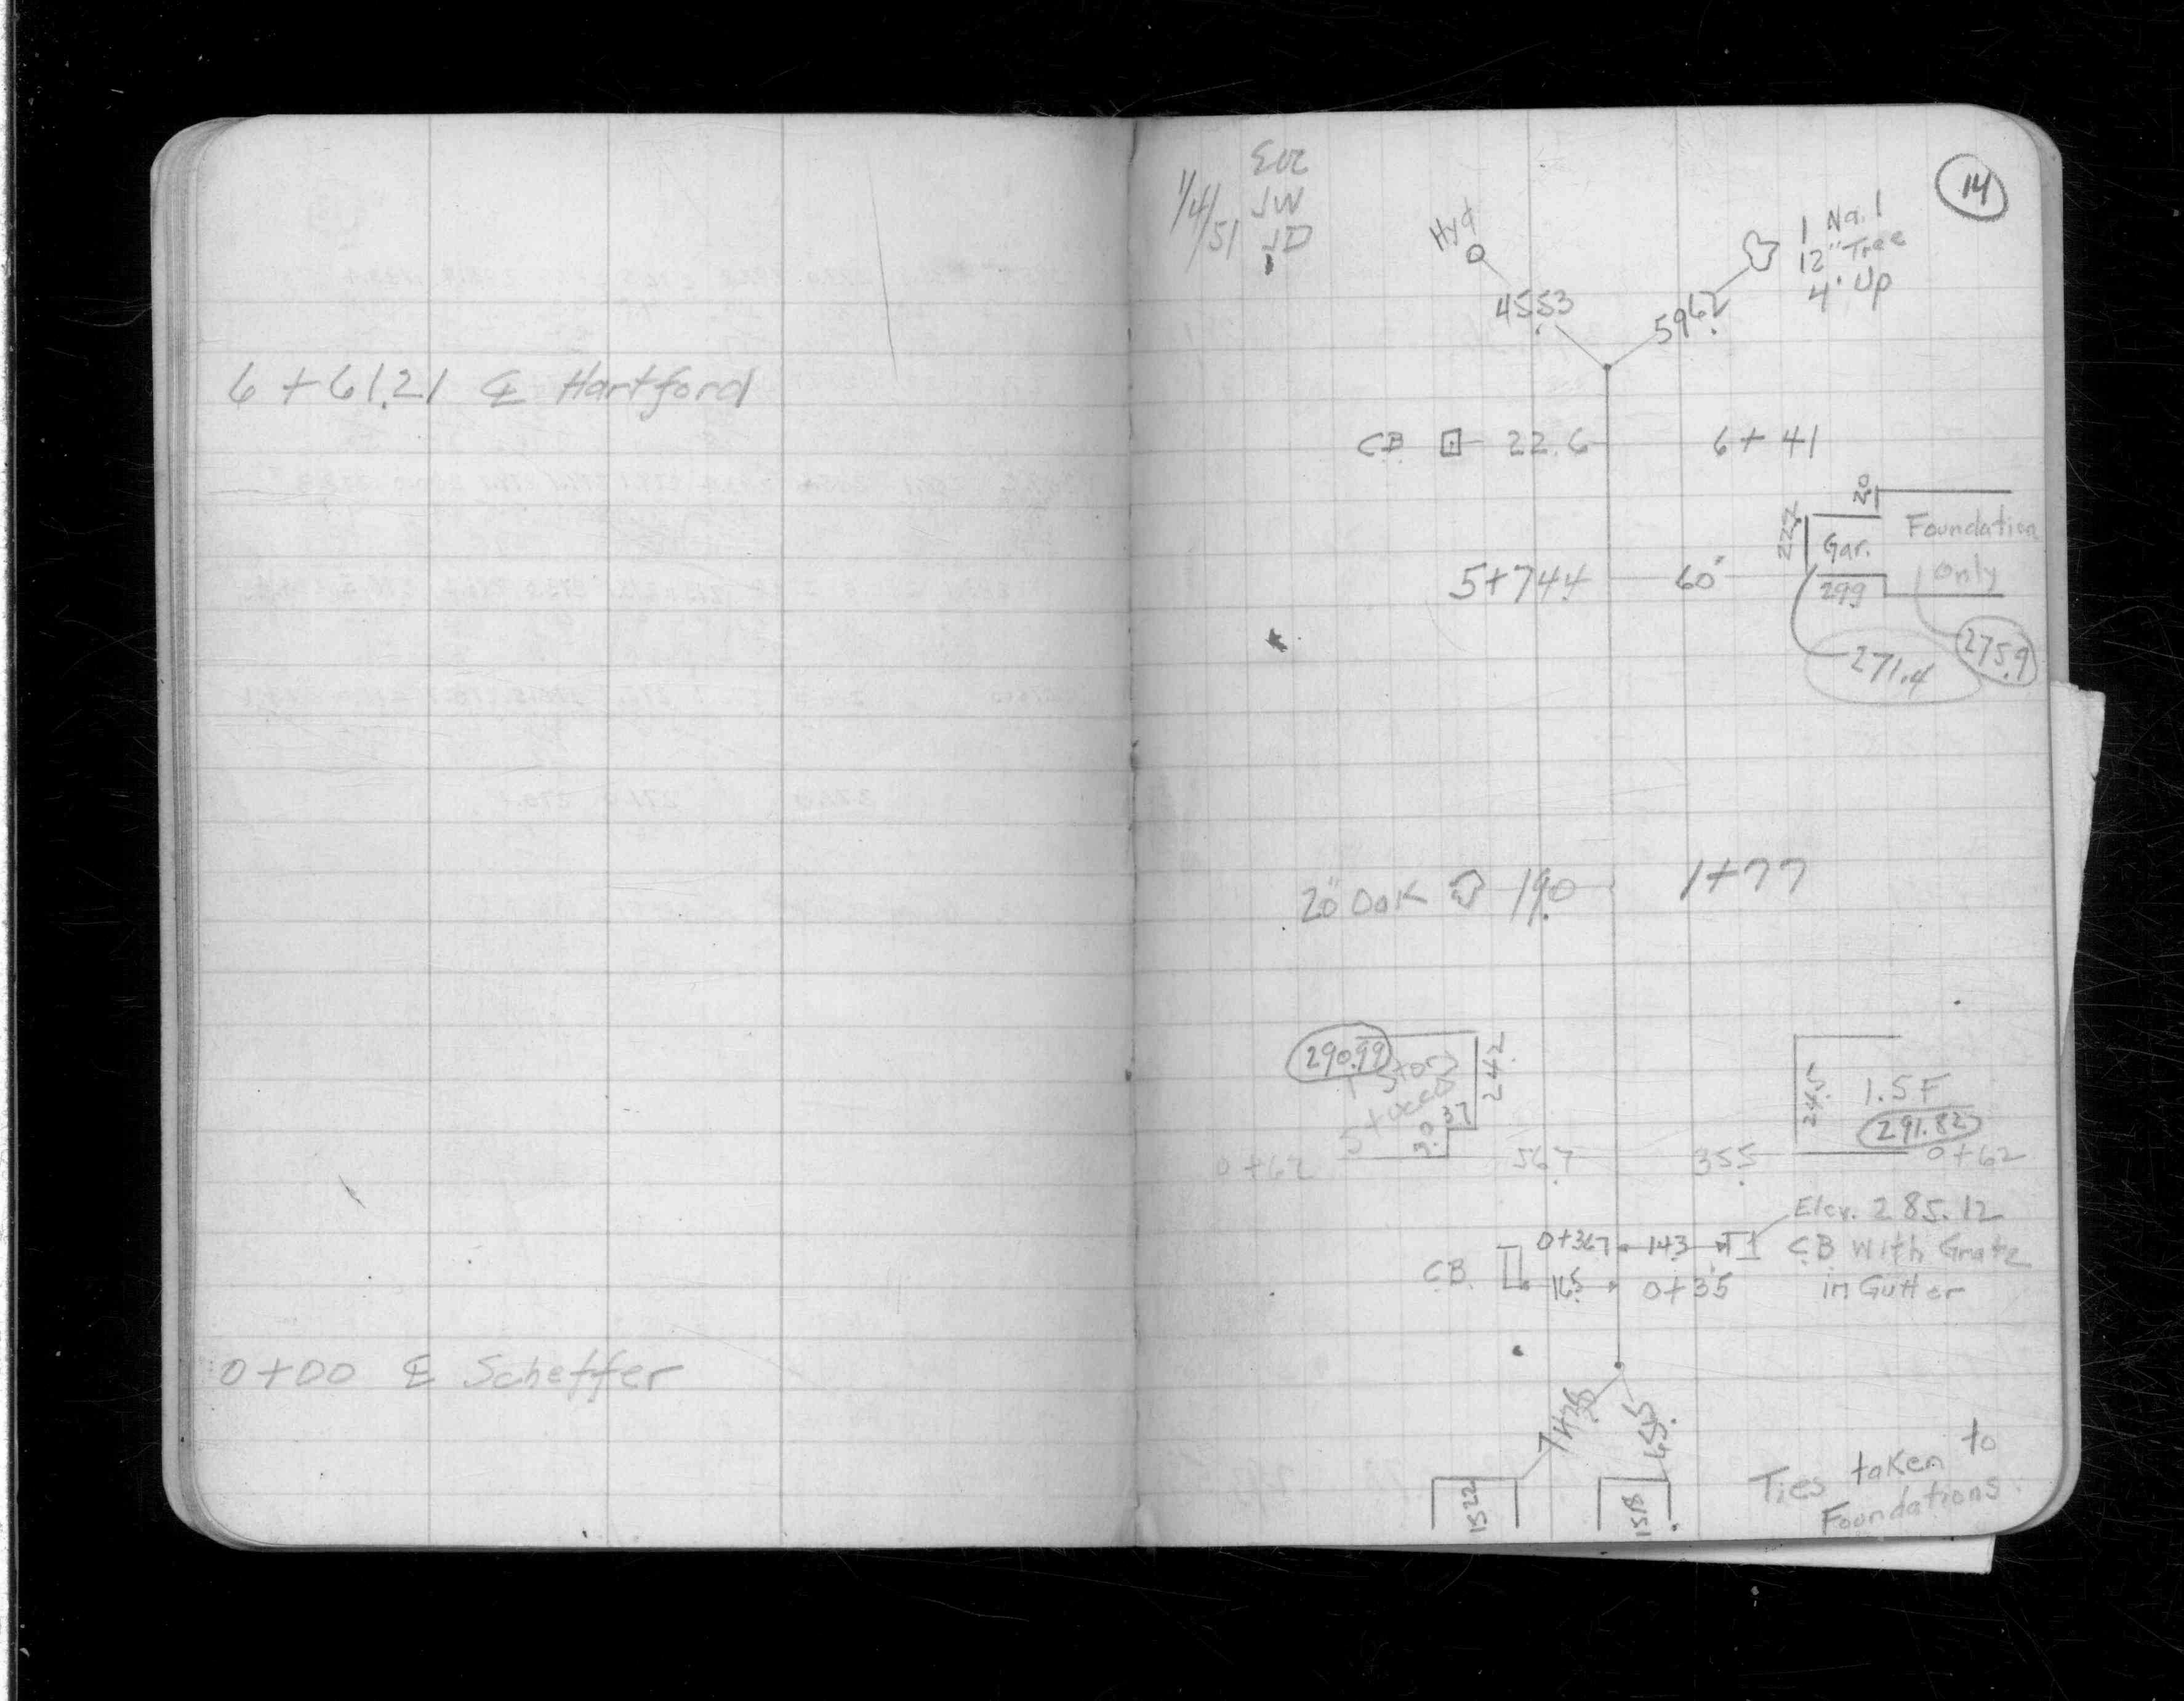 6+61.21 ℄ Hartford
0+00 ℄ Scheffer
14
1/4/51
JW
JD
Hyd
1 Nail
12" Tree
4' Up
45.53
59.62
CB 22.6 6+41
2.0
22.2
Gar.
Foundation
only
5+74.4 60'
29.9
275.9
271.4
20" Oak 19.0 1+77
290.99
1 Story
Stucco
24.2
3.7
24.5
1.5 F
291.82
0+62 56.7 35.5 0+62
Elev. 285.12
0+36.7 14.3 C.B. With Grate
C.B. 16.5 0+35 in Gutter
65.45
1522
1518
Ties taken to
Foundations.